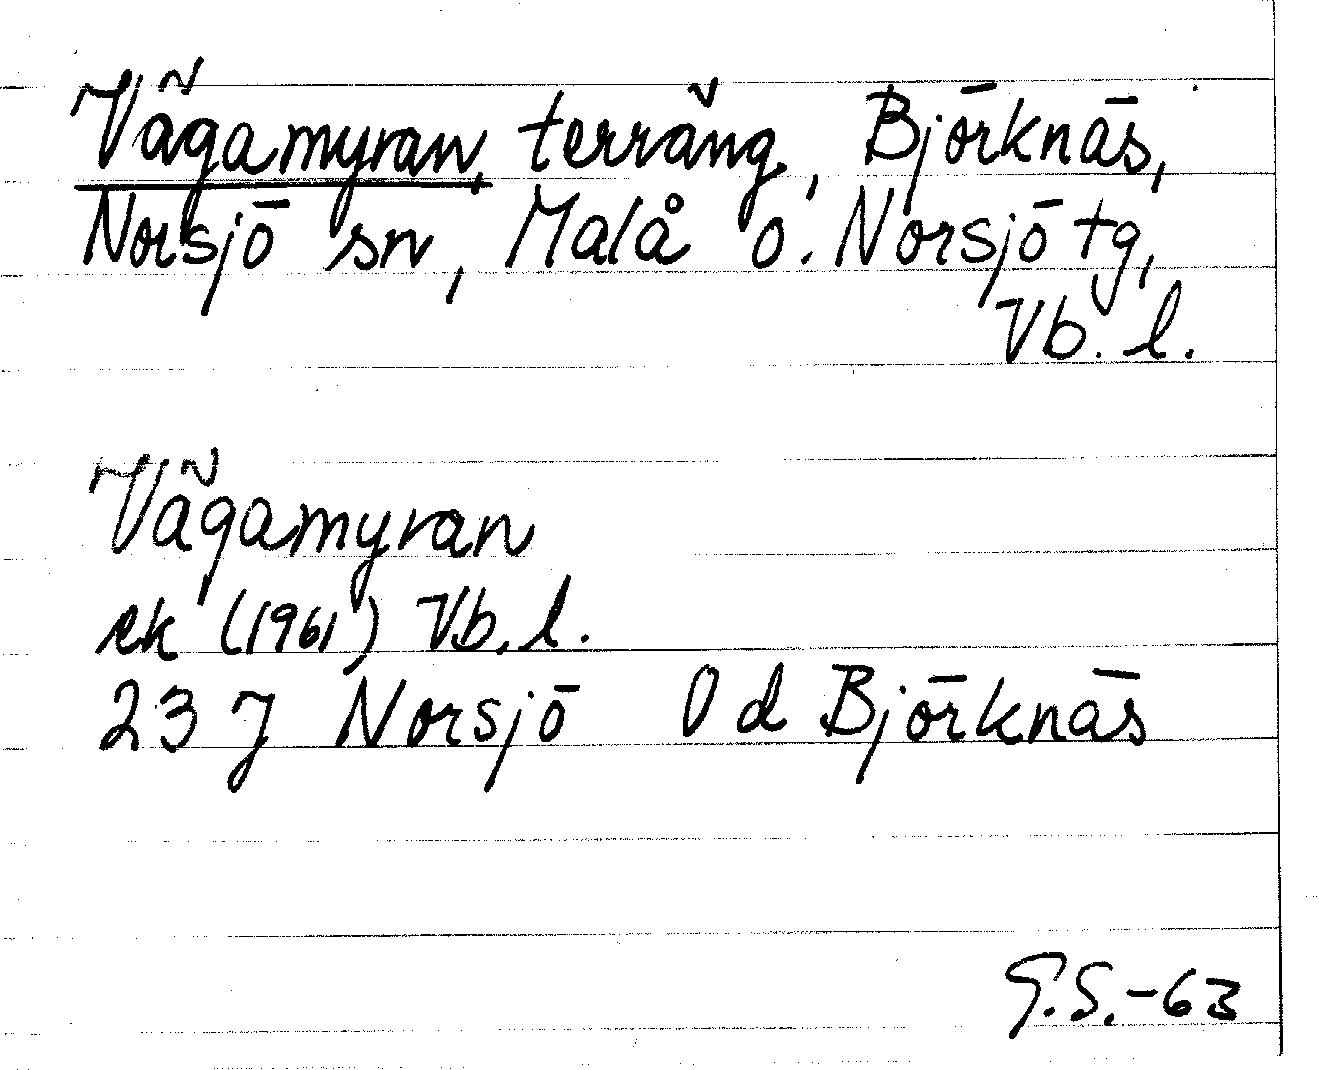 Vägamyran, terräng, Björknäs,
Norsjö sn, Malå o. Norsjö tg,
Vb. l.
Vägamyran
ek (1961) Vb. l.
23 J Norsjö 0 d Björknäs
G.S.-63